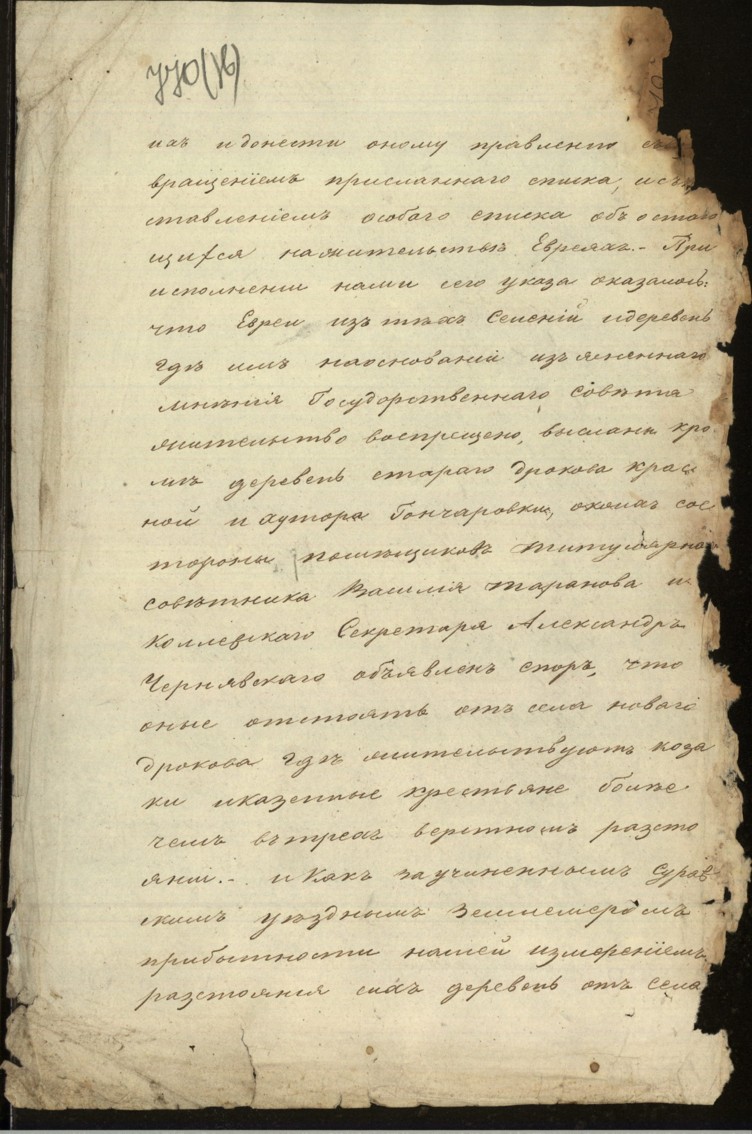 770(16)
ихъ и донести оному правлению съ
вращениемъ присланнаго списка, исъ
ставлениемъ особого списка объ остаю
щихся нажительствѣ Евреяхъ.- При
исполнении нами сего указа оказалось:
что Евреи изъ тѣхъ Селений идеревень
гдѣ имъ наосновании изъясненнаго
мнѣния Государственнаго Совѣта
жительство воспрещено, высланы кро
мѣ деревень стараго дрокова крас
ной и хутора Гончаровки, окоихъ сос
тороны помѣщиковъ титулярнаго
совѣтника Василия таранова и
Коллежскаго Секретаря Александръ
Чернявскаго объявленъ споръ, что
оные отстоятъ отъ села новаго
дрокова гдѣ жительствуютъ коза
ки иказенные крестьяне болѣе
чемъ въ трехъ верстномъ разсто
янии.- и Какъ заучиненнымъ Сураж
скимъ уѣзднымъ Землемеромъ
прибытности нашей измерениемъ
разстояния сихъ деревень отъ села